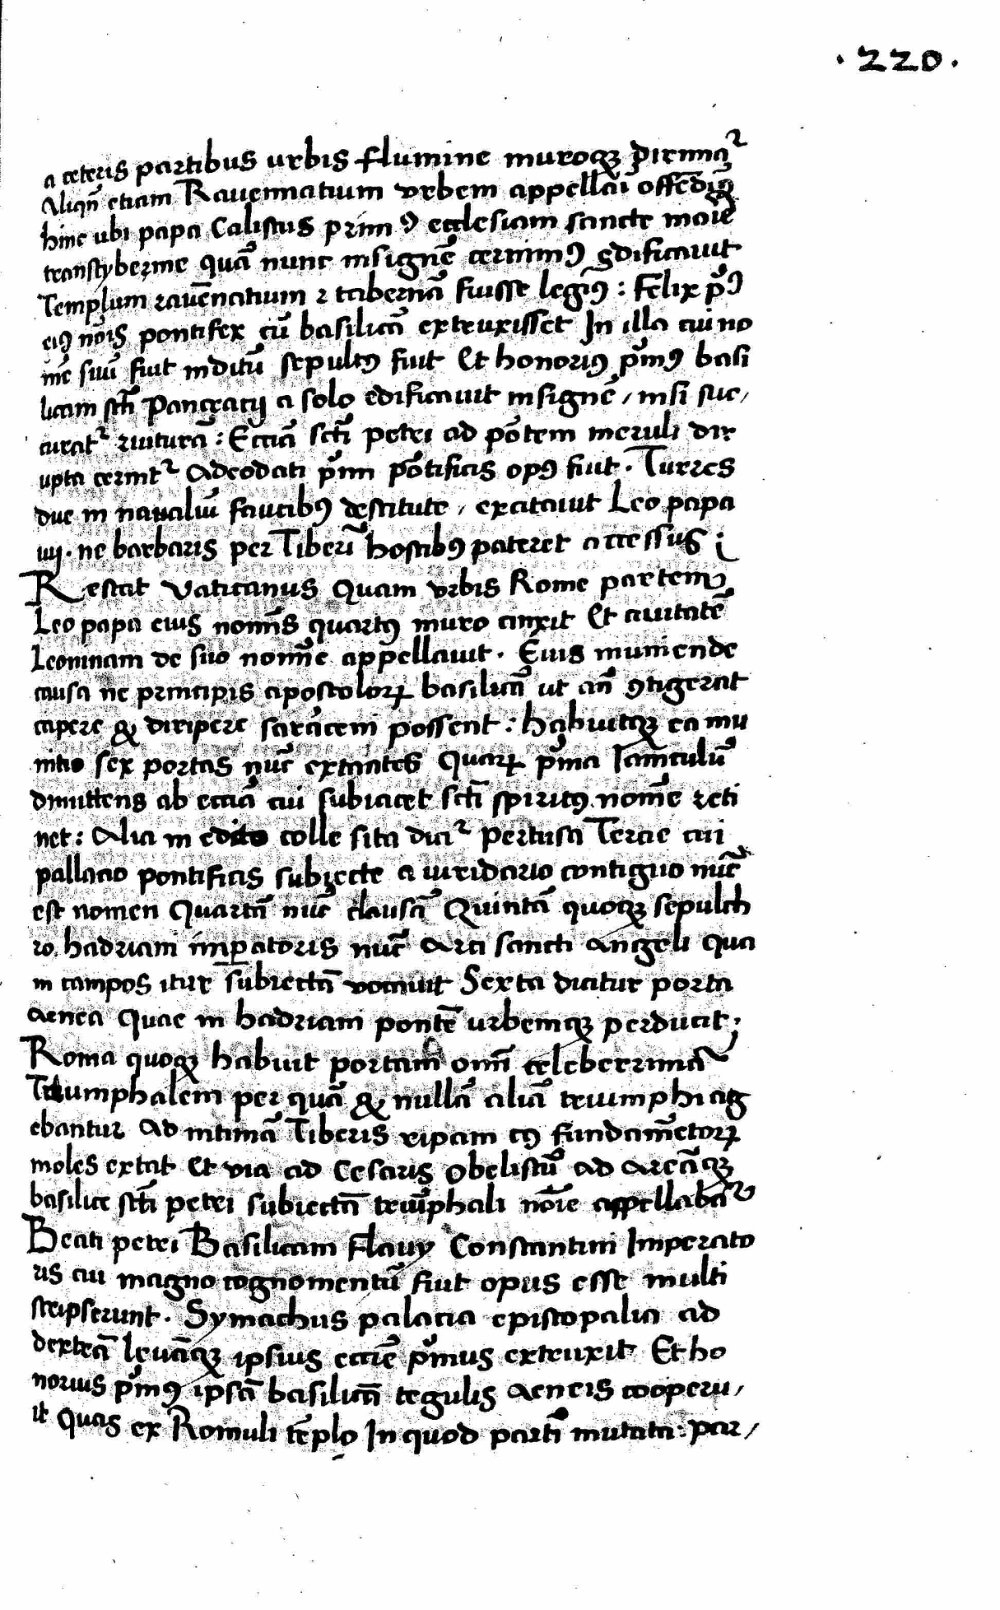 · 220 ·
a ceteris partibus urbis flumine muroqꝫ dirima͂ᷣ
Aliqn̄ etiam Rauennatium vrbem appellari offēdimꝰ
hinc ubi papa Calistus primꝰ ecclesiam sancte marie
transtyberine quā nunc insignē cernimꝰ ędificauit
Templum rauēnatium ⁊ tabernā fuisse legimꝰ : Felix pͥmꝰ
eiꝰ nōis pontifex cū basilicā exteuxisset In illa cui no
mē suū fuit inditū sepultꝰ fuit Et honoriꝰ pͥmꝰ basi
licam sct̄i Pancratij a solo edificauit insignē / nisi suc /
curatᷣ ruiturā : Eccīa sct̄i petri ad pōtem meruli dir
upta cernitᷣ Adeodati pͥmi pōtificis opꝰ fuit · Turres
due in naualiū faucibꝰ destitute / excitauit Leo papa
iiij · ne barbaris per Tiberī hostibꝰ pateret accessus ;
Restat Vaticanus Quam vrbis Rome partem
Leo papa eius nomīs quartꝰ muro cinxit Et ciuitatē
Leoninam de suo nomīe appellauit · Eius muniende
causa ne principis apostoloꝝ basilicā ut an̄ ꝯtigerat
capere & diripere saraceni possent : habuitqꝫ ea mu
nitio sex portas nūc extantes Quaꝝ pͥma Ianiculū
dimittens ab eccīa cui subiacet sct̄i spiritꝰ nomē reti
net : Alia in edito colle sita diciᷣ pertusa Tercie cui
pallacio pontificis subiecte a uiridario contiguo nūc
est nomen Quartā nūc clausā Quintā quoqꝫ sepulch
ro hadriani imperatoris nūc Arci sancti Angeli Qua
in campos itur subiectā vocauit Sexta dicitur porta
aenea Quae in hadriani pontē urbemqꝫ perducit ;
Roma quoqꝫ habuit portam omī celeberrimā
Triumphalem per quā & nullā aliā triumphi ag
ebantur Ad intimā Tiberis ripam cꝰ fundamētoꝝ
moles extat Et via ad Cesaris obeliscū ad Areāqꝫ
basilice sct̄i petri subiectā triūphali nōīe appellabāᷣ
Beati petri Basilicam Flauij Constantini Imperato
ris cui magno cognomentū fuit opus esse multi
scripserunt · Symachus palacia episcopalia ad
dextrā leuāqꝫ ipsius eccīe pͥmus exteuxit Et ho
norius pͥmꝰ ipsā basilicā tegulis aeneis cooperu /
it quas ex Romuli tēplo In quod parti mutata · par /